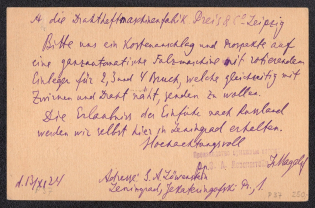 A. die Drahtheftmaschinenfabrik Preis & Co Leipzig
Bitte uns ein Kostenanschlag und Prospekte auf
eine ganzautomatische Falzmaschine mit rotierendem
Einleger für 2, 3 und 4 Bruch, welche gleichzeitig mit
Zwirnen und Draht näht, senden zu wollen.
Die Erlaubnis der Einfuhr nach Russland
werden wir selbst hier in Leningrad erhalten.
Hochachtungsvoll
d. 13/XI 24
Adresse S. A.
Leningrad,